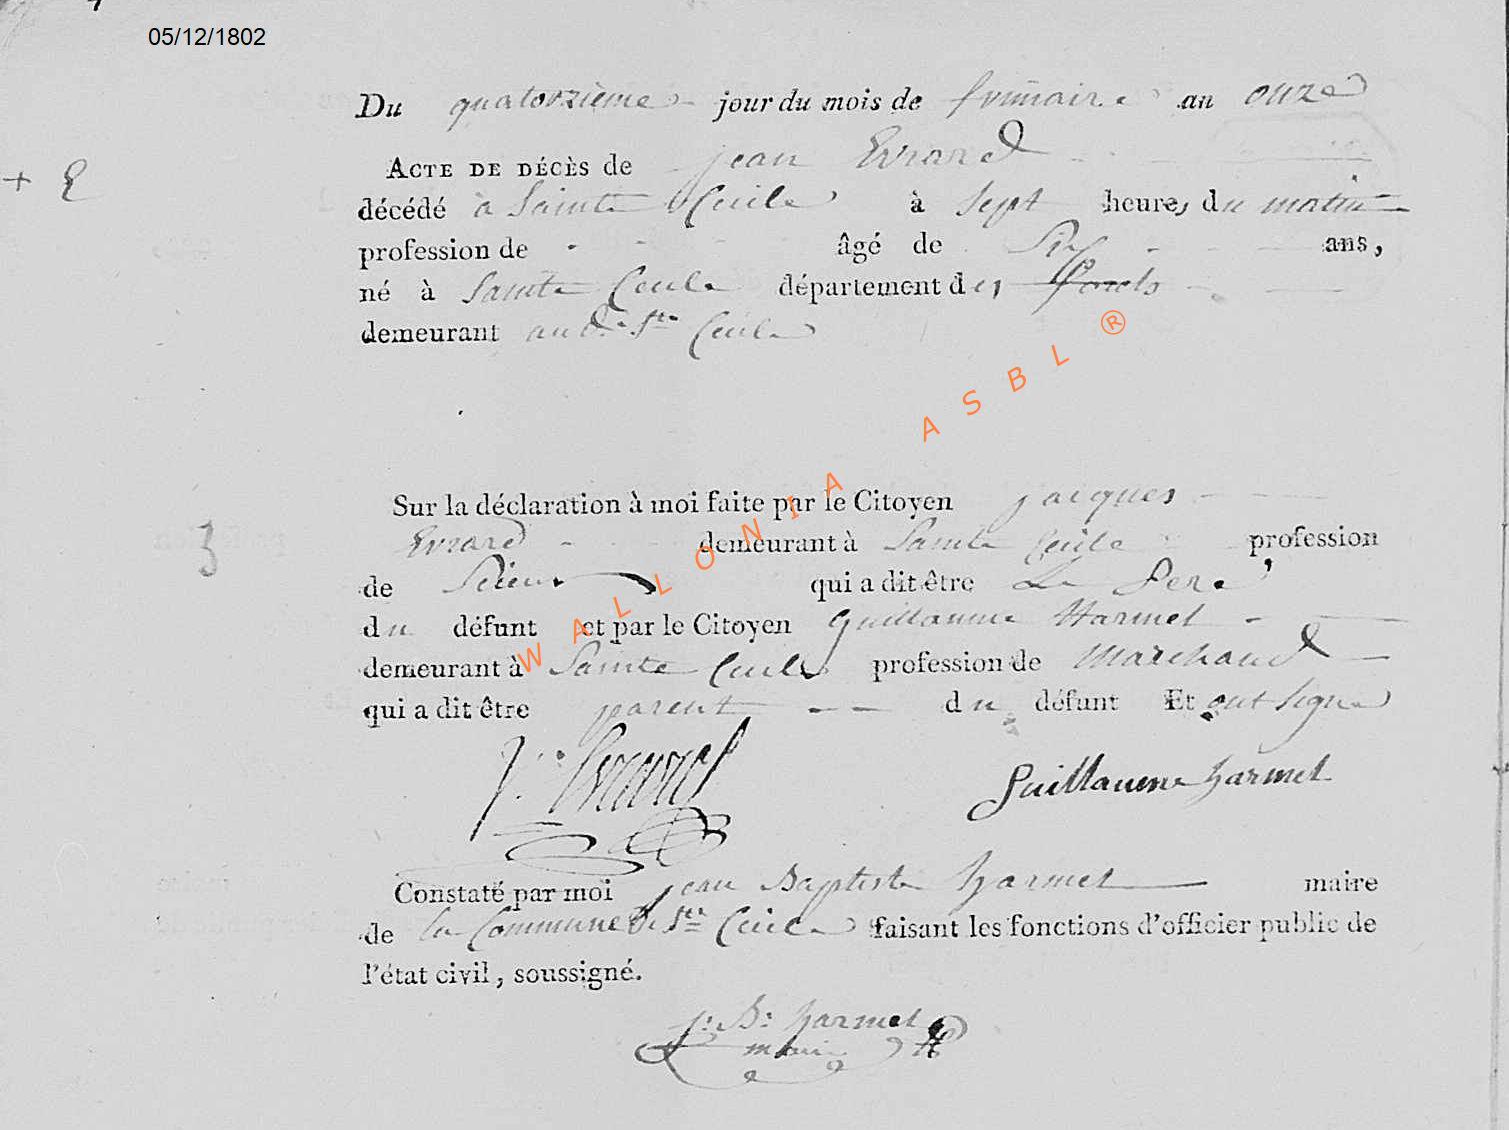 05/12/1802
Du quatorzième jour du mois de frimaire an onze
ACTE DE DÉCÈS de jean Evrard
+ E
décédé à Sainte Cecile à sept heures du matin
profession de - âgé de Six ans,
né à Sainte Cecile département des forets
demeurant aud. Ste Cecile
Sur la déclaration à moi faite par le Citoyen jacques
3
Evrard demeurant à Sainte Cecile profession
de Scieur qui a dit être Le Pere
du défunt et par le Citoyen Guillaume Harmel
demeurant à Sainte Cecile profession de Marchand
qui a dit être parent du défunt Et ont signé
J: Evrard
Guillaume harmel
Constaté par moi jean Baptiste harmel maire
de la Commune de Ste Cecile faisant les fonctions d'officier public de
l'état civil, soussigné.
j: B: harmel
maire
WALLONIA ASBL ®